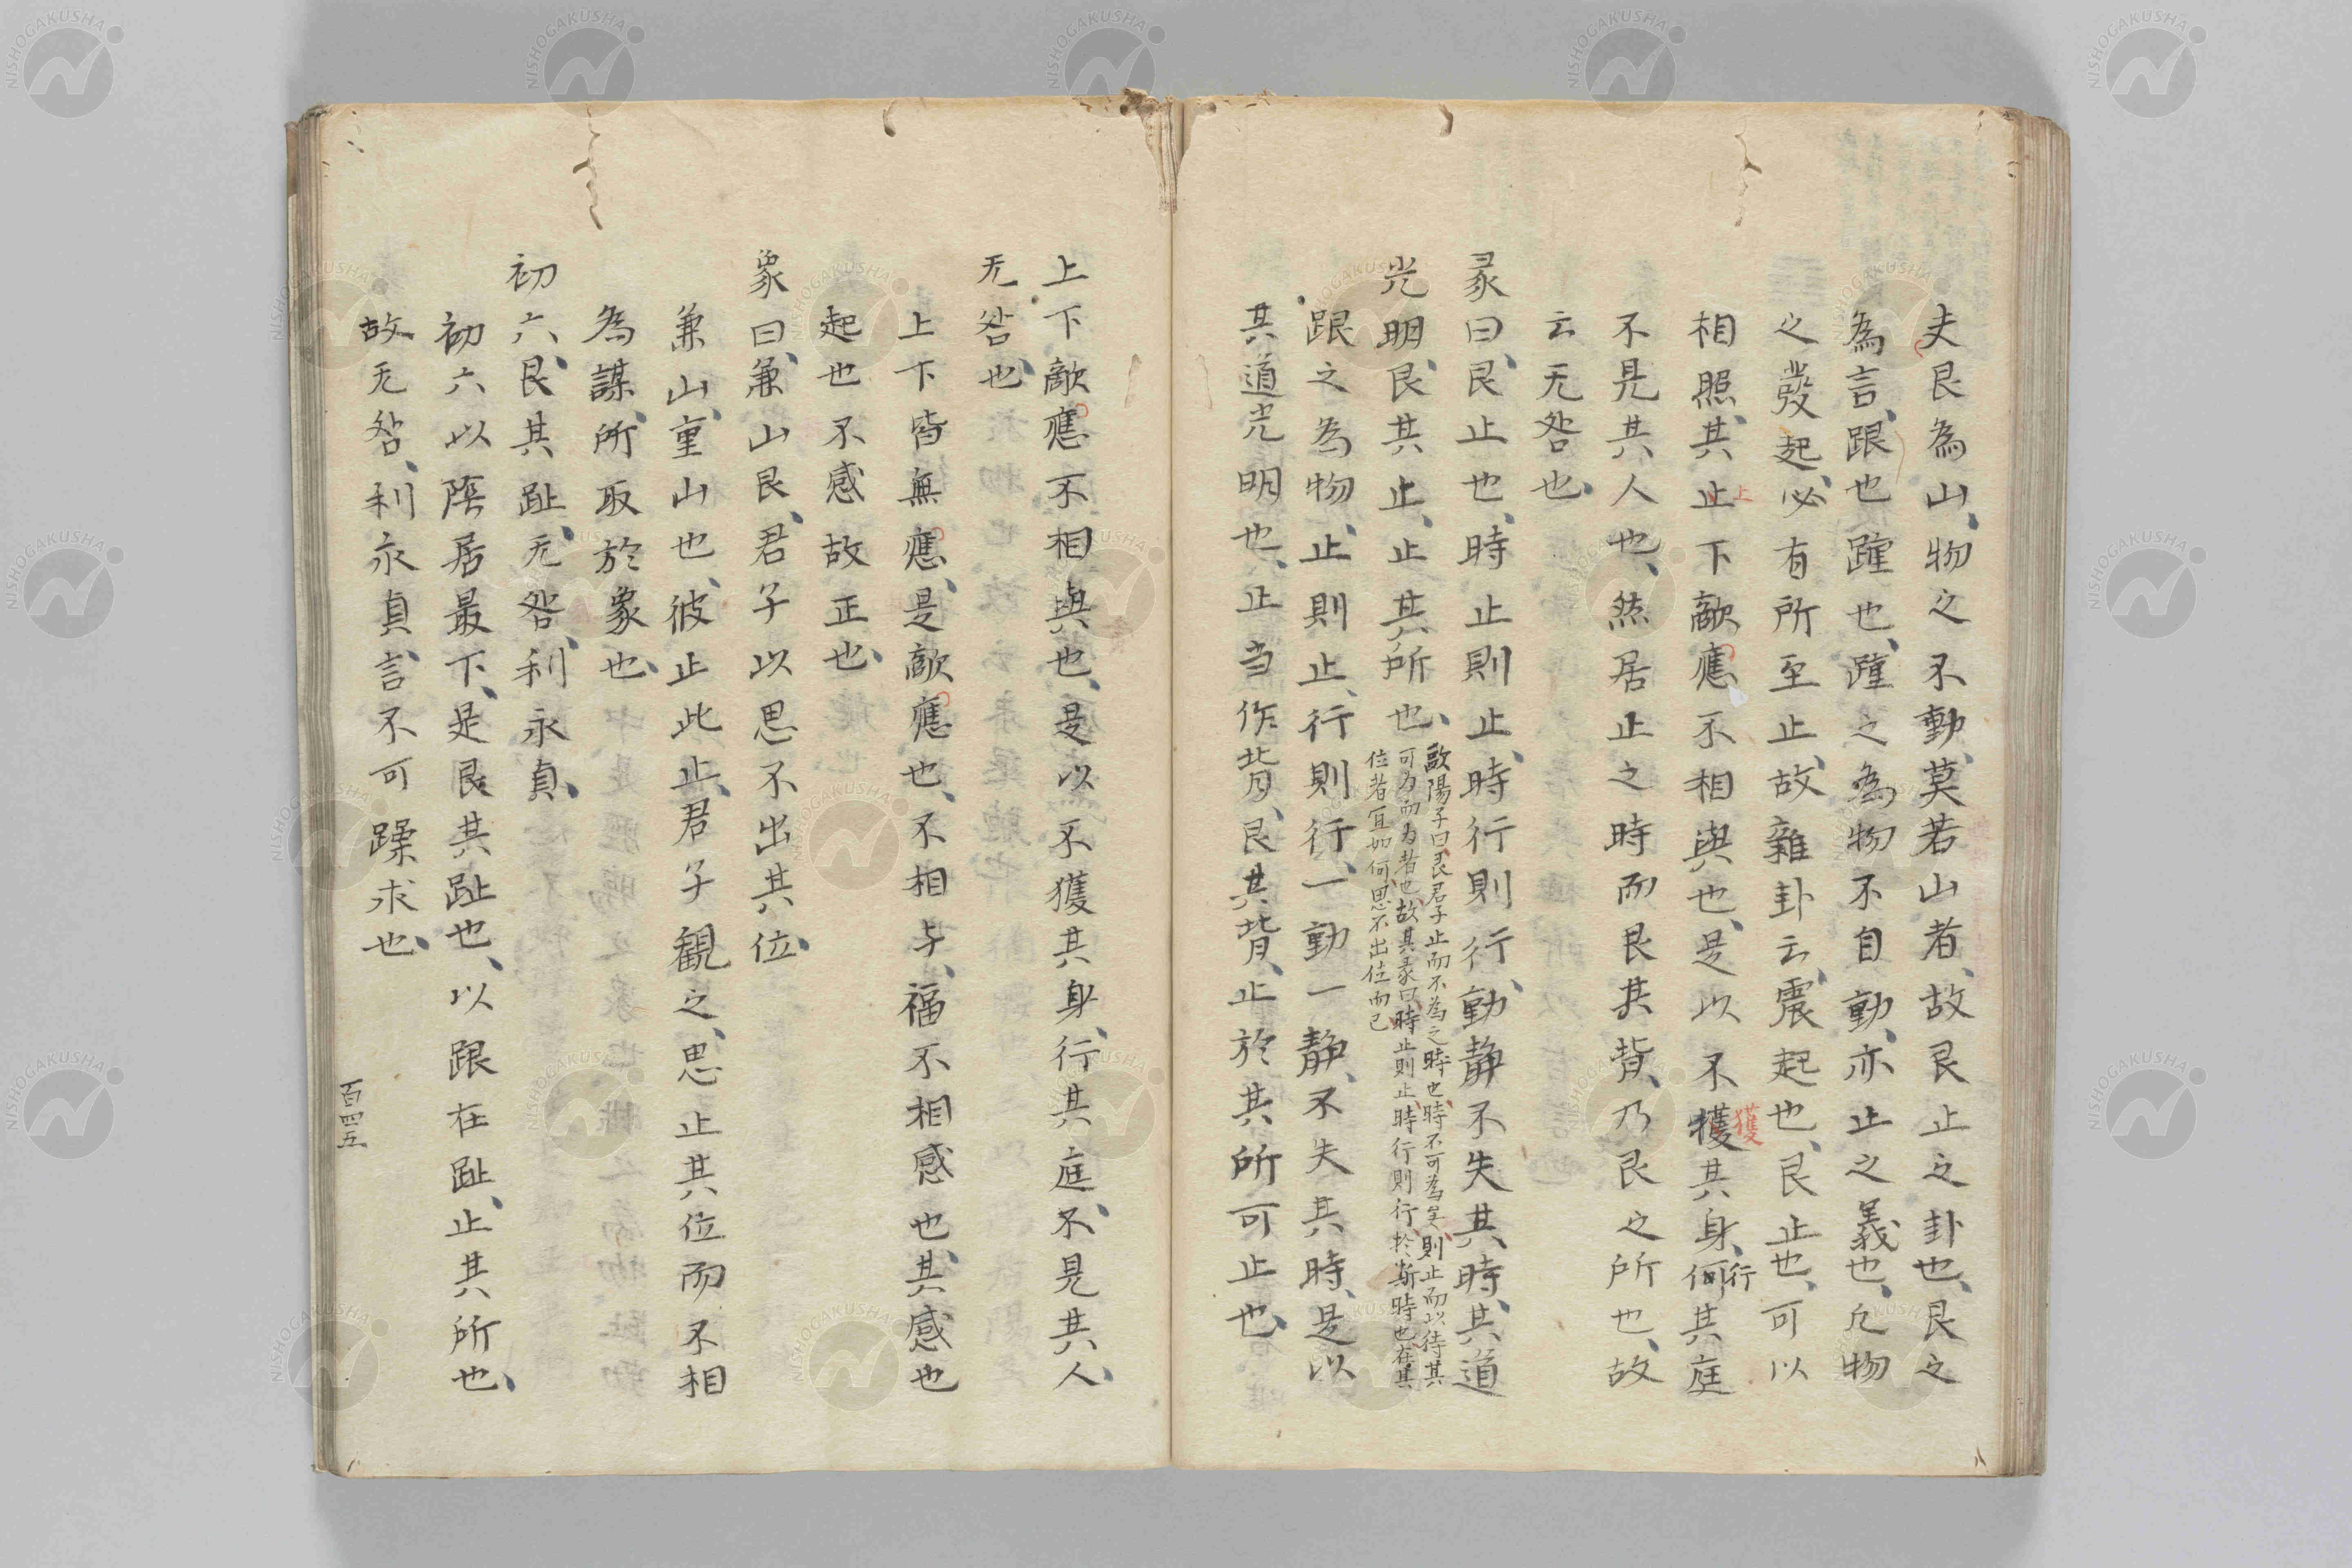 夫艮為山、物之不動、莫若山者、故艮止之卦也、艮之
為言、跟也踵也、踵之為物不自動、亦止之義也、凢物
之發起、必有所至止、故雜卦云、震起也、艮止也、可以
相照、其止下敵應不相與也、是以不獲其身、何其庭
上
獲
行
不見其人也、然居止之時而艮其背、乃艮之所也、故
云无咎也、
彖曰、艮止也、時止則止、時行則行、動静不失其時、其道
光明、艮其止、止其所也、
歐陽子曰、艮君子止而不為之時也、時不可為矣、則止而以待其
可为而为者也、故其彖曰、時止則止、時行則行、於斯時也、在其
位者宜如何、思不出位而已
跟之為物、止則止、行則行、一動一静、不失其時、是以
其道光明也、止当作背、艮其背、止於其所可止也、
上下敵應不相與也、是以不獲其身、行其庭、不見其人、
无咎也、
上下皆無應、是敵應也、不相与、福不相感也、其感也
起也不感故正也、
象曰、兼山艮、君子以思不出其位、
兼山、重山也、彼止此止、君子觀之、思止其位而不相
為謀、所取於象也、
初六、艮其趾、无咎、利永貞、
初六以陰居最下、是艮其趾也、以跟在趾、止其所也、
故无咎、利永貞、言不可躁求也、
百四五
NISHOGAKUSHA